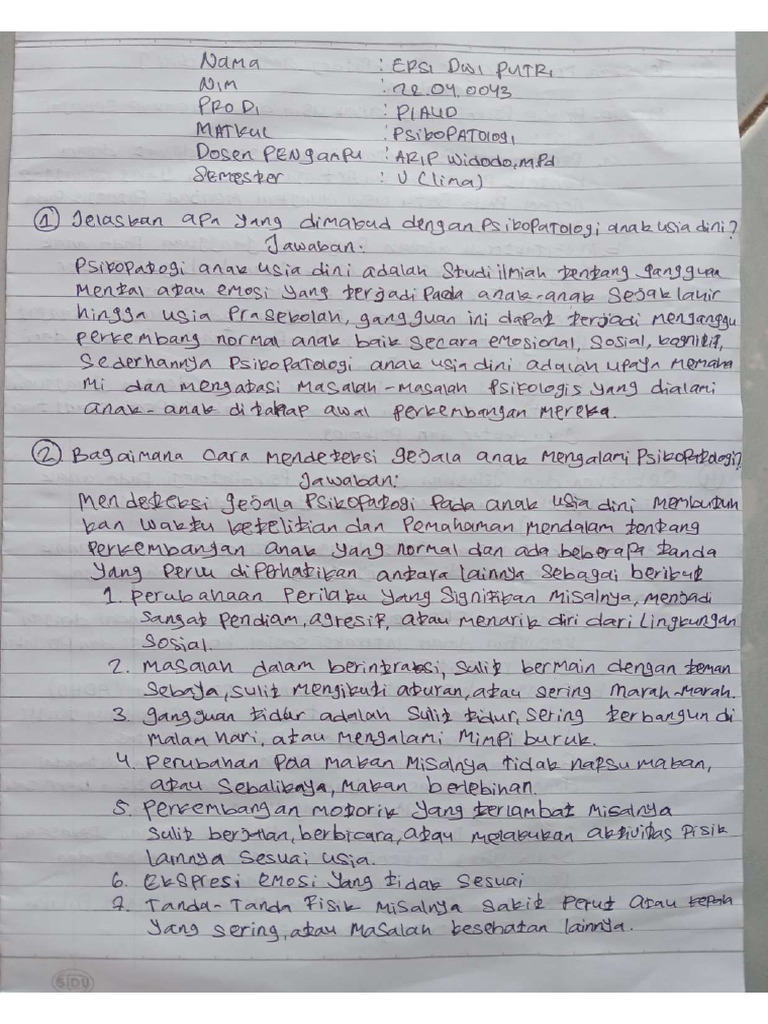 Nama : EPSI DWI PUTRI
NIM : 22.04.0043
PRODI : PIAUD
MATKUL : PSIKOPATOlogi
Dosen PENGAMPU : ARIP Widodo, M.Pd
Semester : V (lima)
① Jelaskan apa yang dimabud dengan Psikopatologi anak usia dini?
Jawaban:
Psikopatogi anak usia dini adalah Studi ilmiah tentang gangguan
Mental atau emosi yang terjadi pada anak-anak Sejak lahir
hingga usia Prasekolah, gangguan ini dapat terjadi menganggu
perkembang normal anak baik Secara emosional, Sosial, kognitif,
Sederhannya Psikopatologi anak usia dini adalah upaya memaha
mi dan mengatasi Masalah-Masalah Psikologis yang dialami
anak-anak ditahap awal perkembangan mereka.
② Bagaimana cara mendeteksi gejala anak mengalami Psikopatologi?
Jawaban:
Mendeteksi gejala Psikopatogi Pada anak usia dini membutuh
kan waktu ketelitian dan Pemahaman mendalam tentang
Perkembangan anak yang normal dan ada beberapa tanda
yang Perlu diperhatikan antara lainnya Sebagai berikut
1. Perubahaan Perilaku yang Signifikan Misalnya, menjadi
Sangat Pendiam, agresif, atau menarik diri dari lingkungan
Sosial.
2. Masalah dalam berintraksi, sulit bermain dengan teman
Sebaya, sulit mengikuti aturan, atau sering Marah-Marah.
3. gangguan tidur adalah Sulit tidur, Sering terbangun di
malam hari, atau mengalami mimpi buruk.
4. Perubahan Pola makan Misalnya tidak napsu makan,
atau Sebalikaya, Makan berlebihan.
5. Perkembangan motorik yang terlambat Misalnya
Sulit berjalan, berbicara, atau melakukan aktivitas Pisik
lainnya Sesuai usia.
6. Ekspresi emosi yang tidak Sesuai
7. Tanda-Tanda Fisik Misalnya Sakit Perut atau kepala
yang sering, atau Masalah kesehatan lainnya.
SIDU